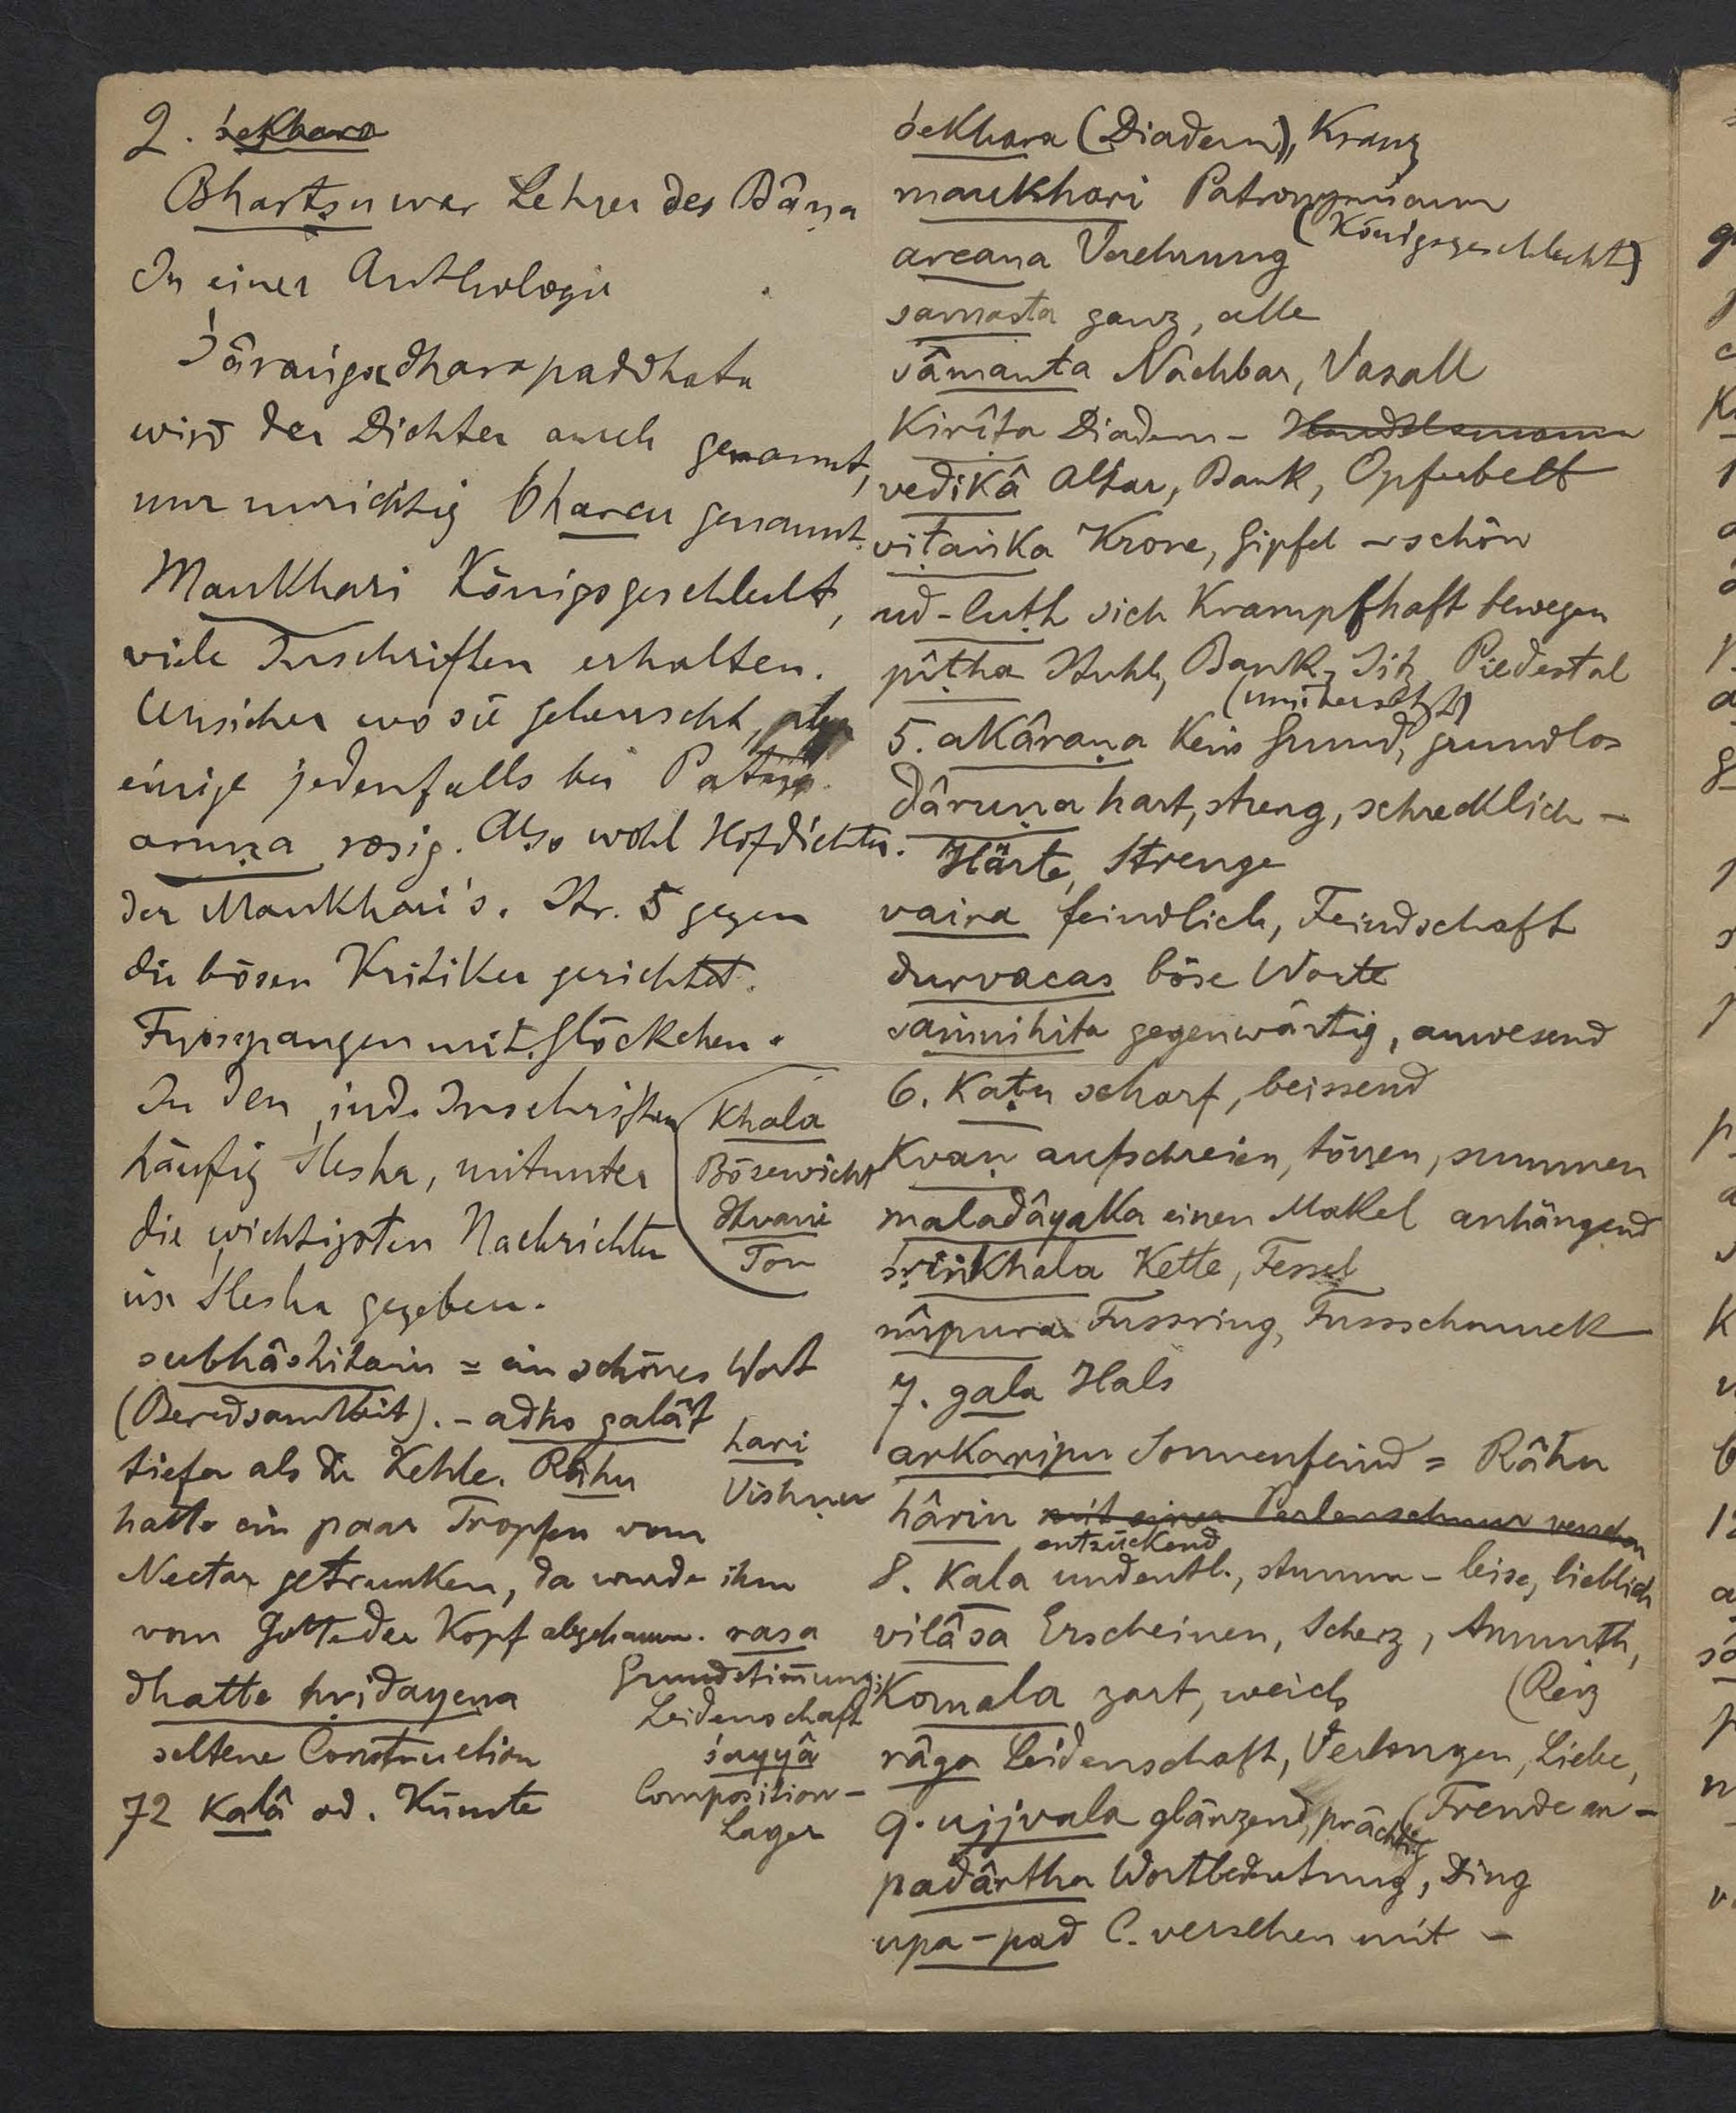 2. śekhara
Bhartsu war Lehrer des Bâṇa
In einer Anthologie
Śâraṅgadharapaddhata
wird der Dichter auch genannt,
nur unrichtig Bharcu genannt.
Maukhari Königsgeschlecht,
viele Inschriften erhalten.
Unsicher wo sie geherrscht,
einige jedenfalls bei Patna.
aruṇa rosig. Also wohl Hofdichter
der Maukhari's. Str. 5 gegen
die bösen Kritiker gerichtet.
Fussspangen mit Glöckchen.
In den ind. Inschriften
häufig Ślesha, mitunter
die wichtigsten Nachrichten
in Ślesha gegeben.
khala
Bösewicht
dhvani
Ton
subhâshitaṁ = ein schönes Wort
(Beredsamkeit). - adho galât
tiefer als die Kehle. Râhu
hari
Vishnu
hatte ein paar Tropfen vom
Nectar getrunken, da wurde ihm
vom Gotte der Kopf abgehauen.
dhatte hridayena
seltene Construction
72 kalâ od. Künste
rasa
Grundstim̄ung;
Leidenschaft
śayyâ
Composition -
Lager
śekhara (Diadem), Kranz
maukhari Patronymicum
(Königsgeschlecht)
arcana Verehrung
samasta ganz, alle
sâmanta Nachbar, Vasall
Kirîṭa Diadem -
vedikâ Altar, Bank, Opferbett
viṭaṅka Krone, Gipfel - schön
ud-luṭh sich krampfhaft bewegen
pîṭha Stuhl, Bank, Sitz, Piedestal
5. akâraṇa kein Grund, grundlos
dâruṇa hart, streng, schrecklich -
Härte, Strenge
vaira feindlich, Feindschaft
durvacas böse Worte
saṁnihita gegenwärtig, anwesend
6. kaṭu scharf, beissend
kvaṇ aufschreien, tönen, summen
maladâyaka einen Makel anhängend
śṛiṅkhala Kette, Fessel
nûpura Fussring, Fussschmuck
7. gala Hals
arkaripu Sonnenfeind = Râhu
hârin mit einer Perlenschnur versehen
entzückend
8. kala undeutl., stumm - leise, lieblich
vilâsa Erscheinen, Scherz, Anmuth,
(Reiz
komala zart, weich
râga Leidenschaft, Verlangen, Liebe,
(Freude an -
9. ujjvala glänzend, prächtig
padârtha Wortbedeutung, Ding
upa-pad C. versehen mit -